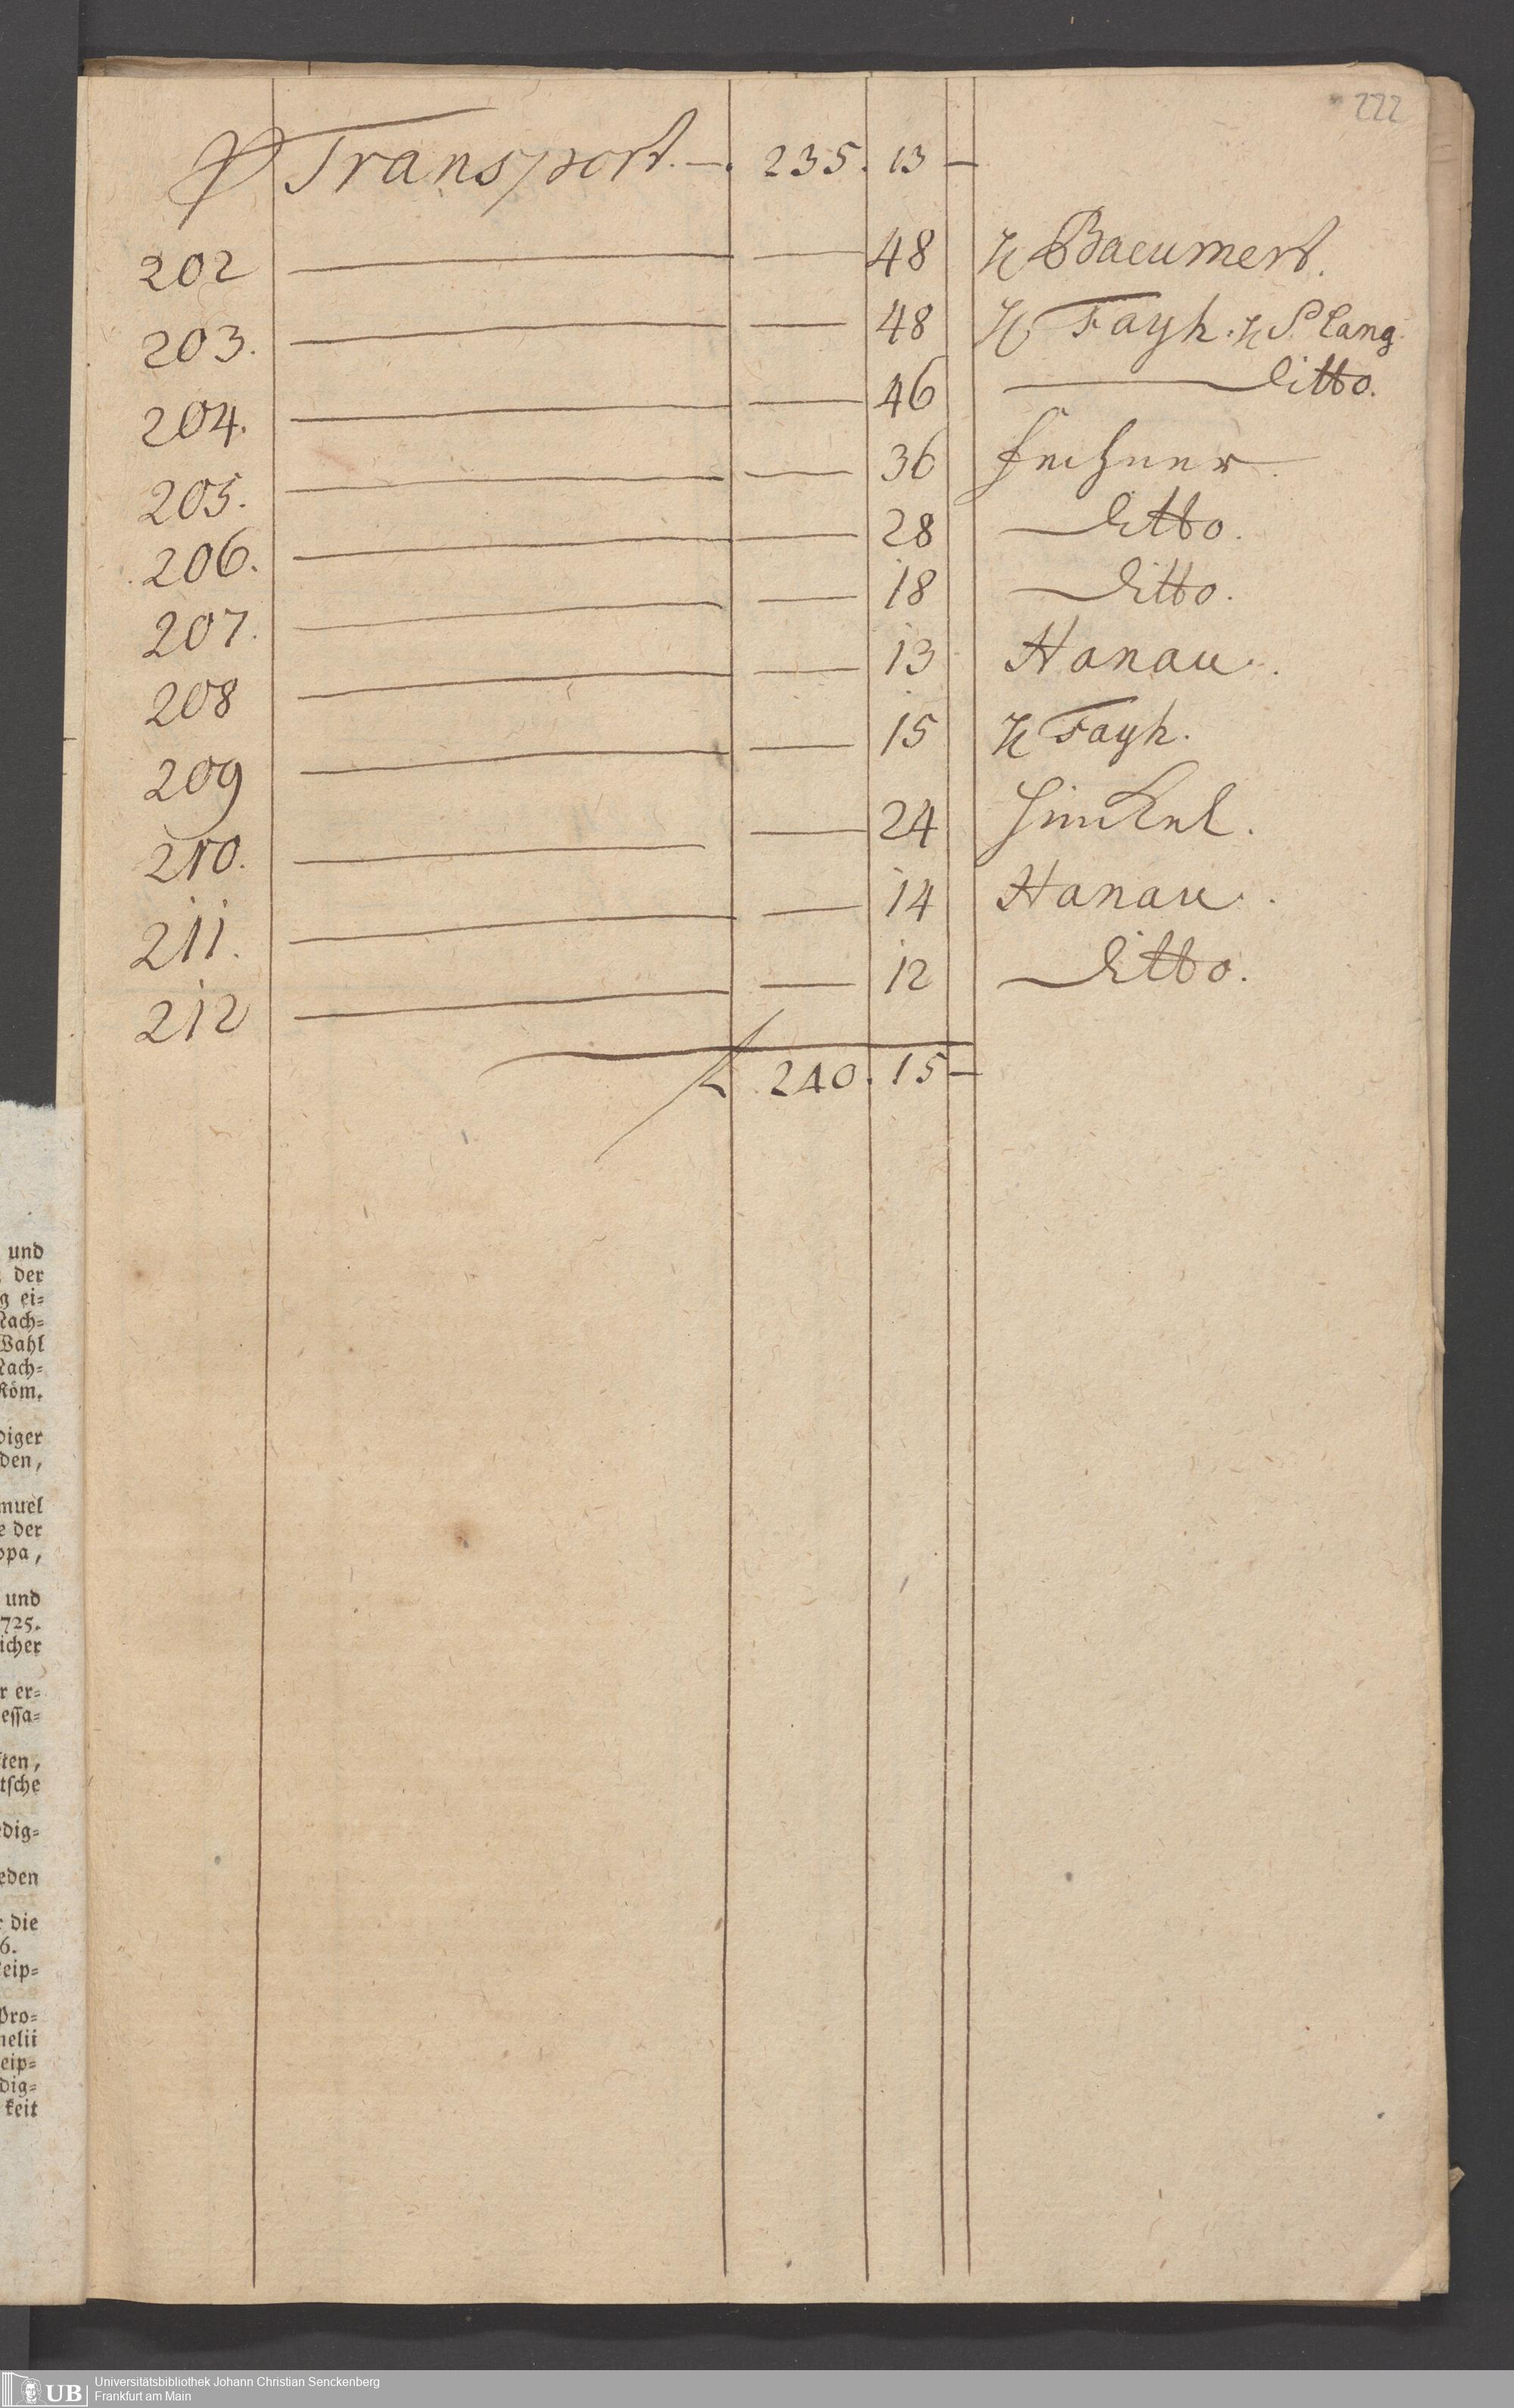 222
Transport. 235. 13 —
202 — — 48 H Baeumert.
203. — — 48 H Fayh. H S. Lang.
204. — — 46 — ditto.
205. — — 36
206. — — 28 — ditto.
207. — — 18 — ditto.
208 — — 13 Hanau.
209 — — 15 H Fayh.
210. — — 24 Hinckel.
211. — — 14 Hanau.
212 — — 12 — ditto.
240. 15 —
und
der
g ei=
Nach=
Wahl
Nach=
Röm.
diger
den,
muel
e der
opa,
und
725.
icher
r er=
essa=
ften,
tsche
edig=
eden
r die
6.
eip=
Pro=
nelii
eip=
dig=
keit
UB Universitätsbibliothek Johann Christian Senckenberg
Frankfurt am Main